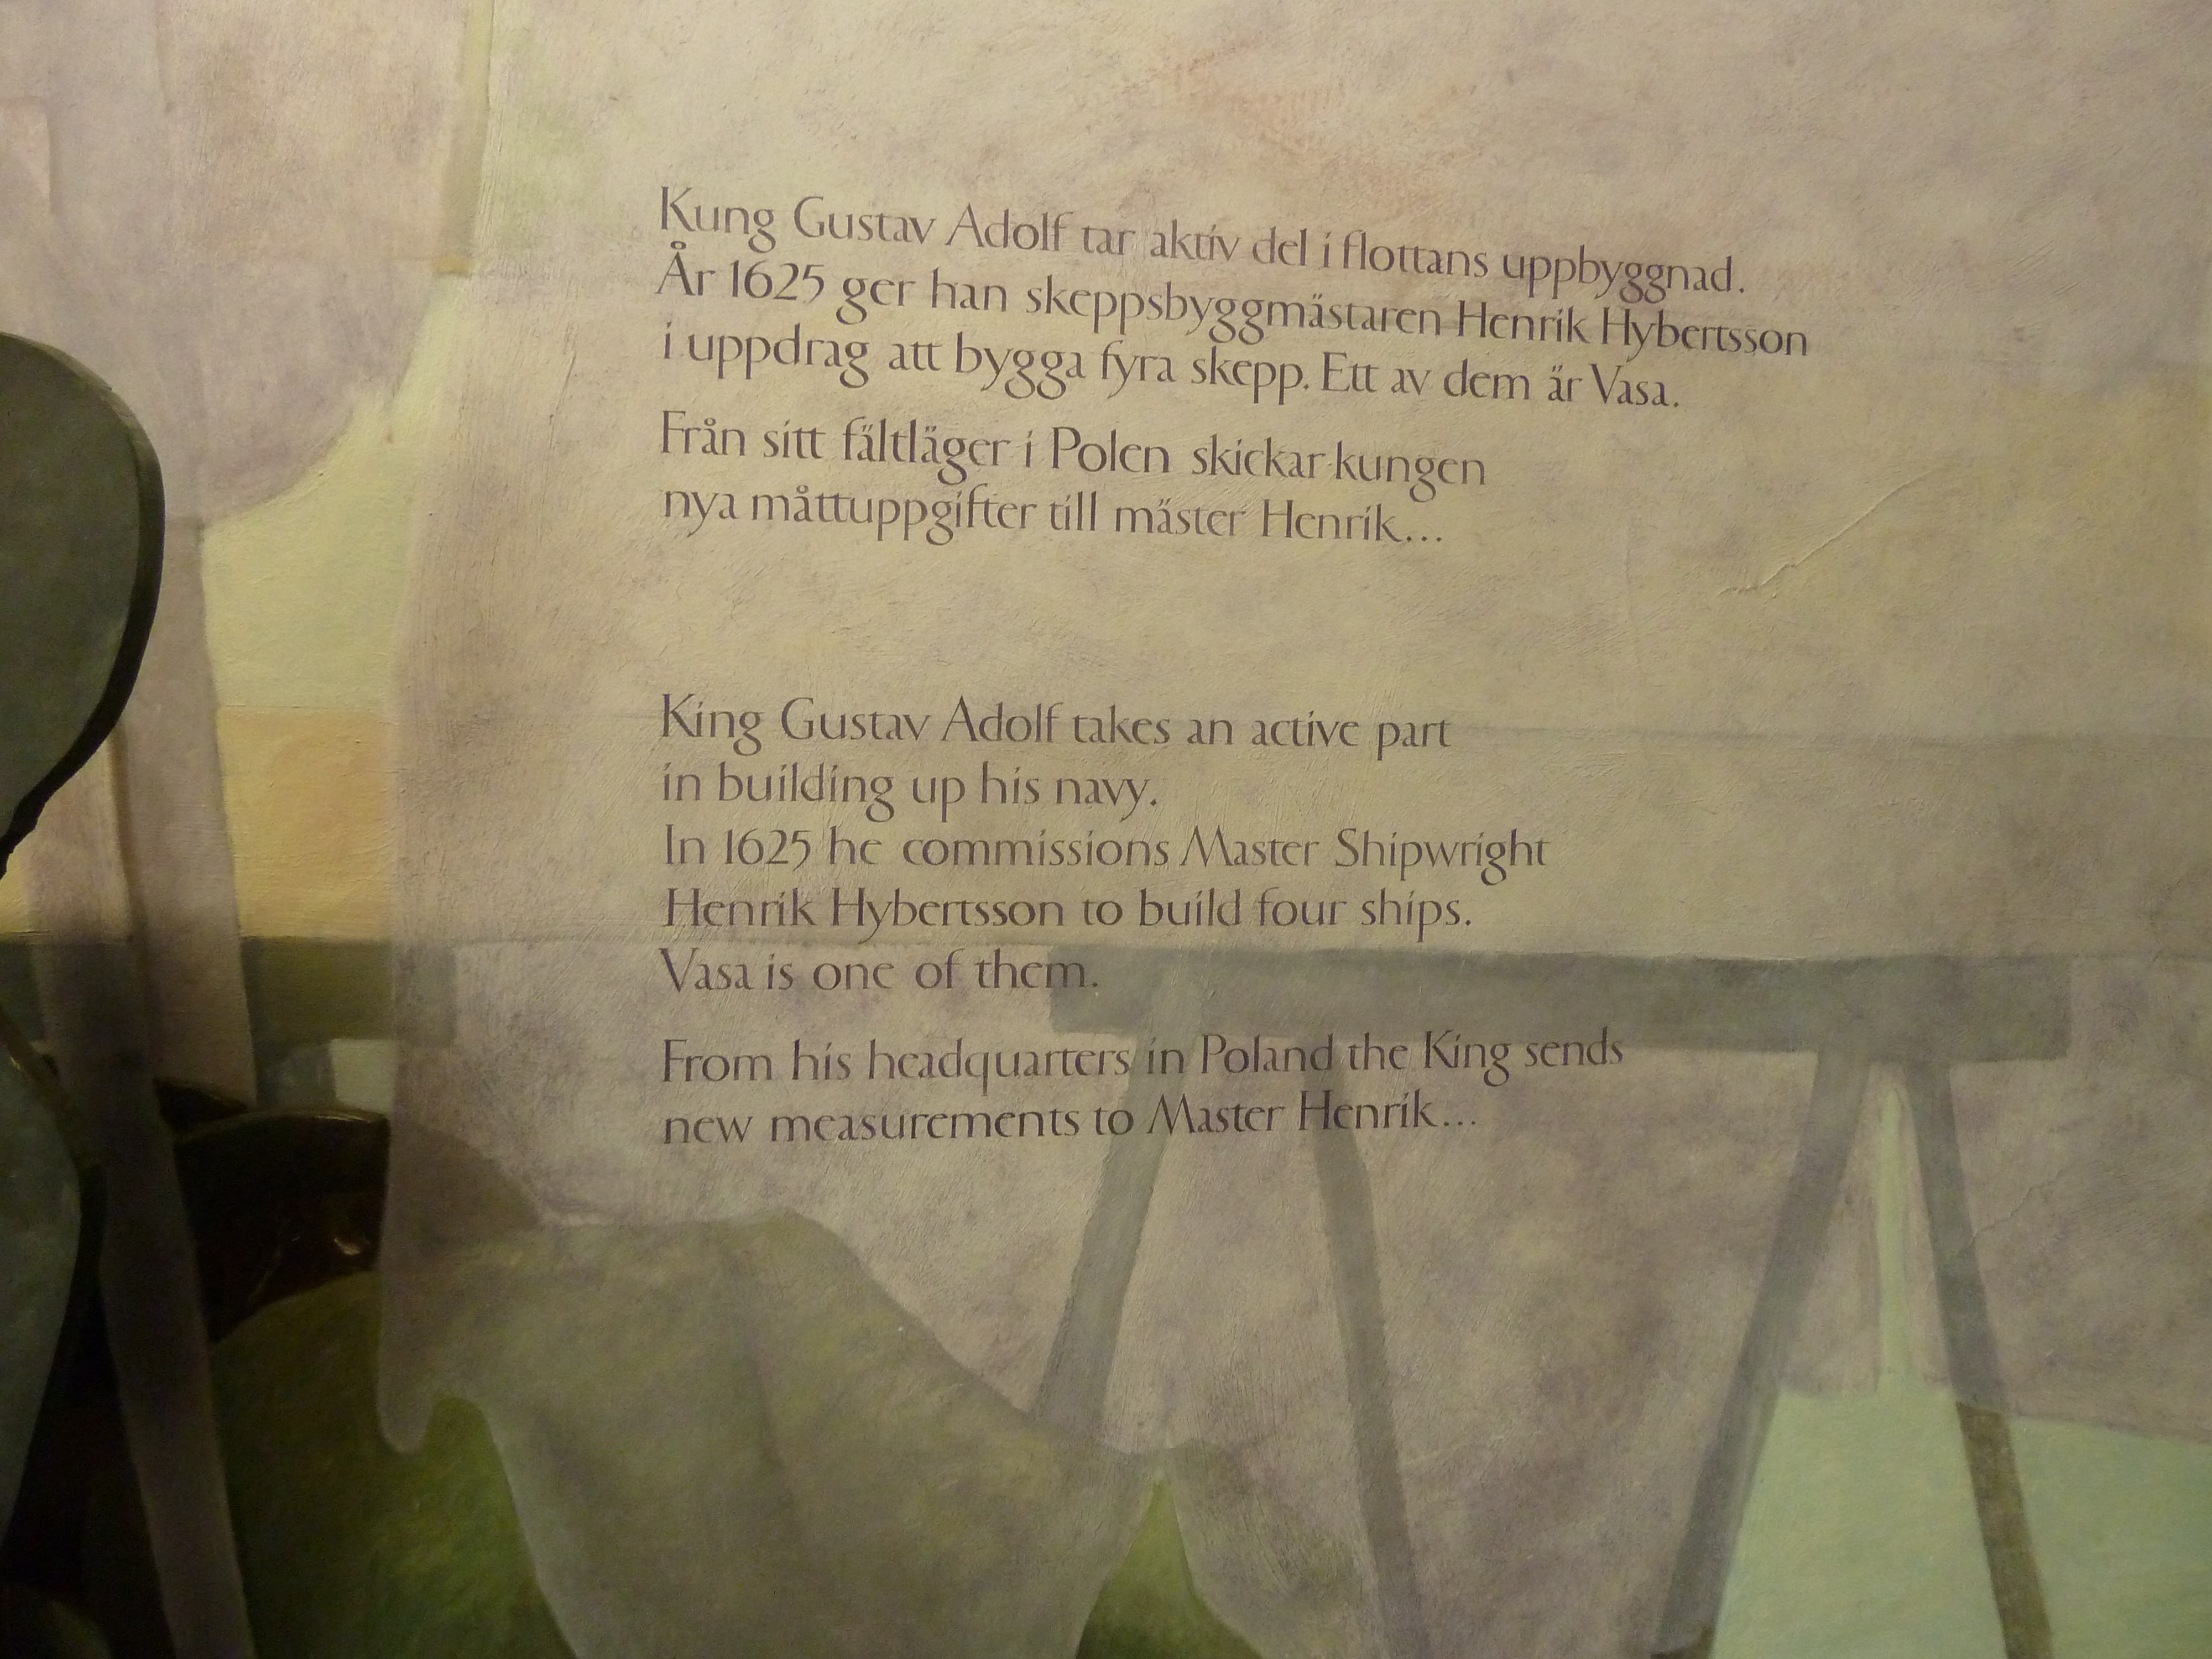 Kung Gustav Adolf tar aktiv del i flottans uppbyggnad.
År 1625 ger han skeppsbyggmästaren Henrik Hybertsson
i uppdrag att bygga fyra skepp. Ett av dem är Vasa.
Från sitt fältläger i Polen skickar kungen
nya måttuppgifter till mäster Henrik...
King Gustav Adolf takes an active part
in building up his navy.
In 1625 he commissions Master Shipwright
Henrik Hybertsson to build four ships.
Vasa is one of them.
From his headquarters in Poland the King sends
new measurements to Master Henrik...